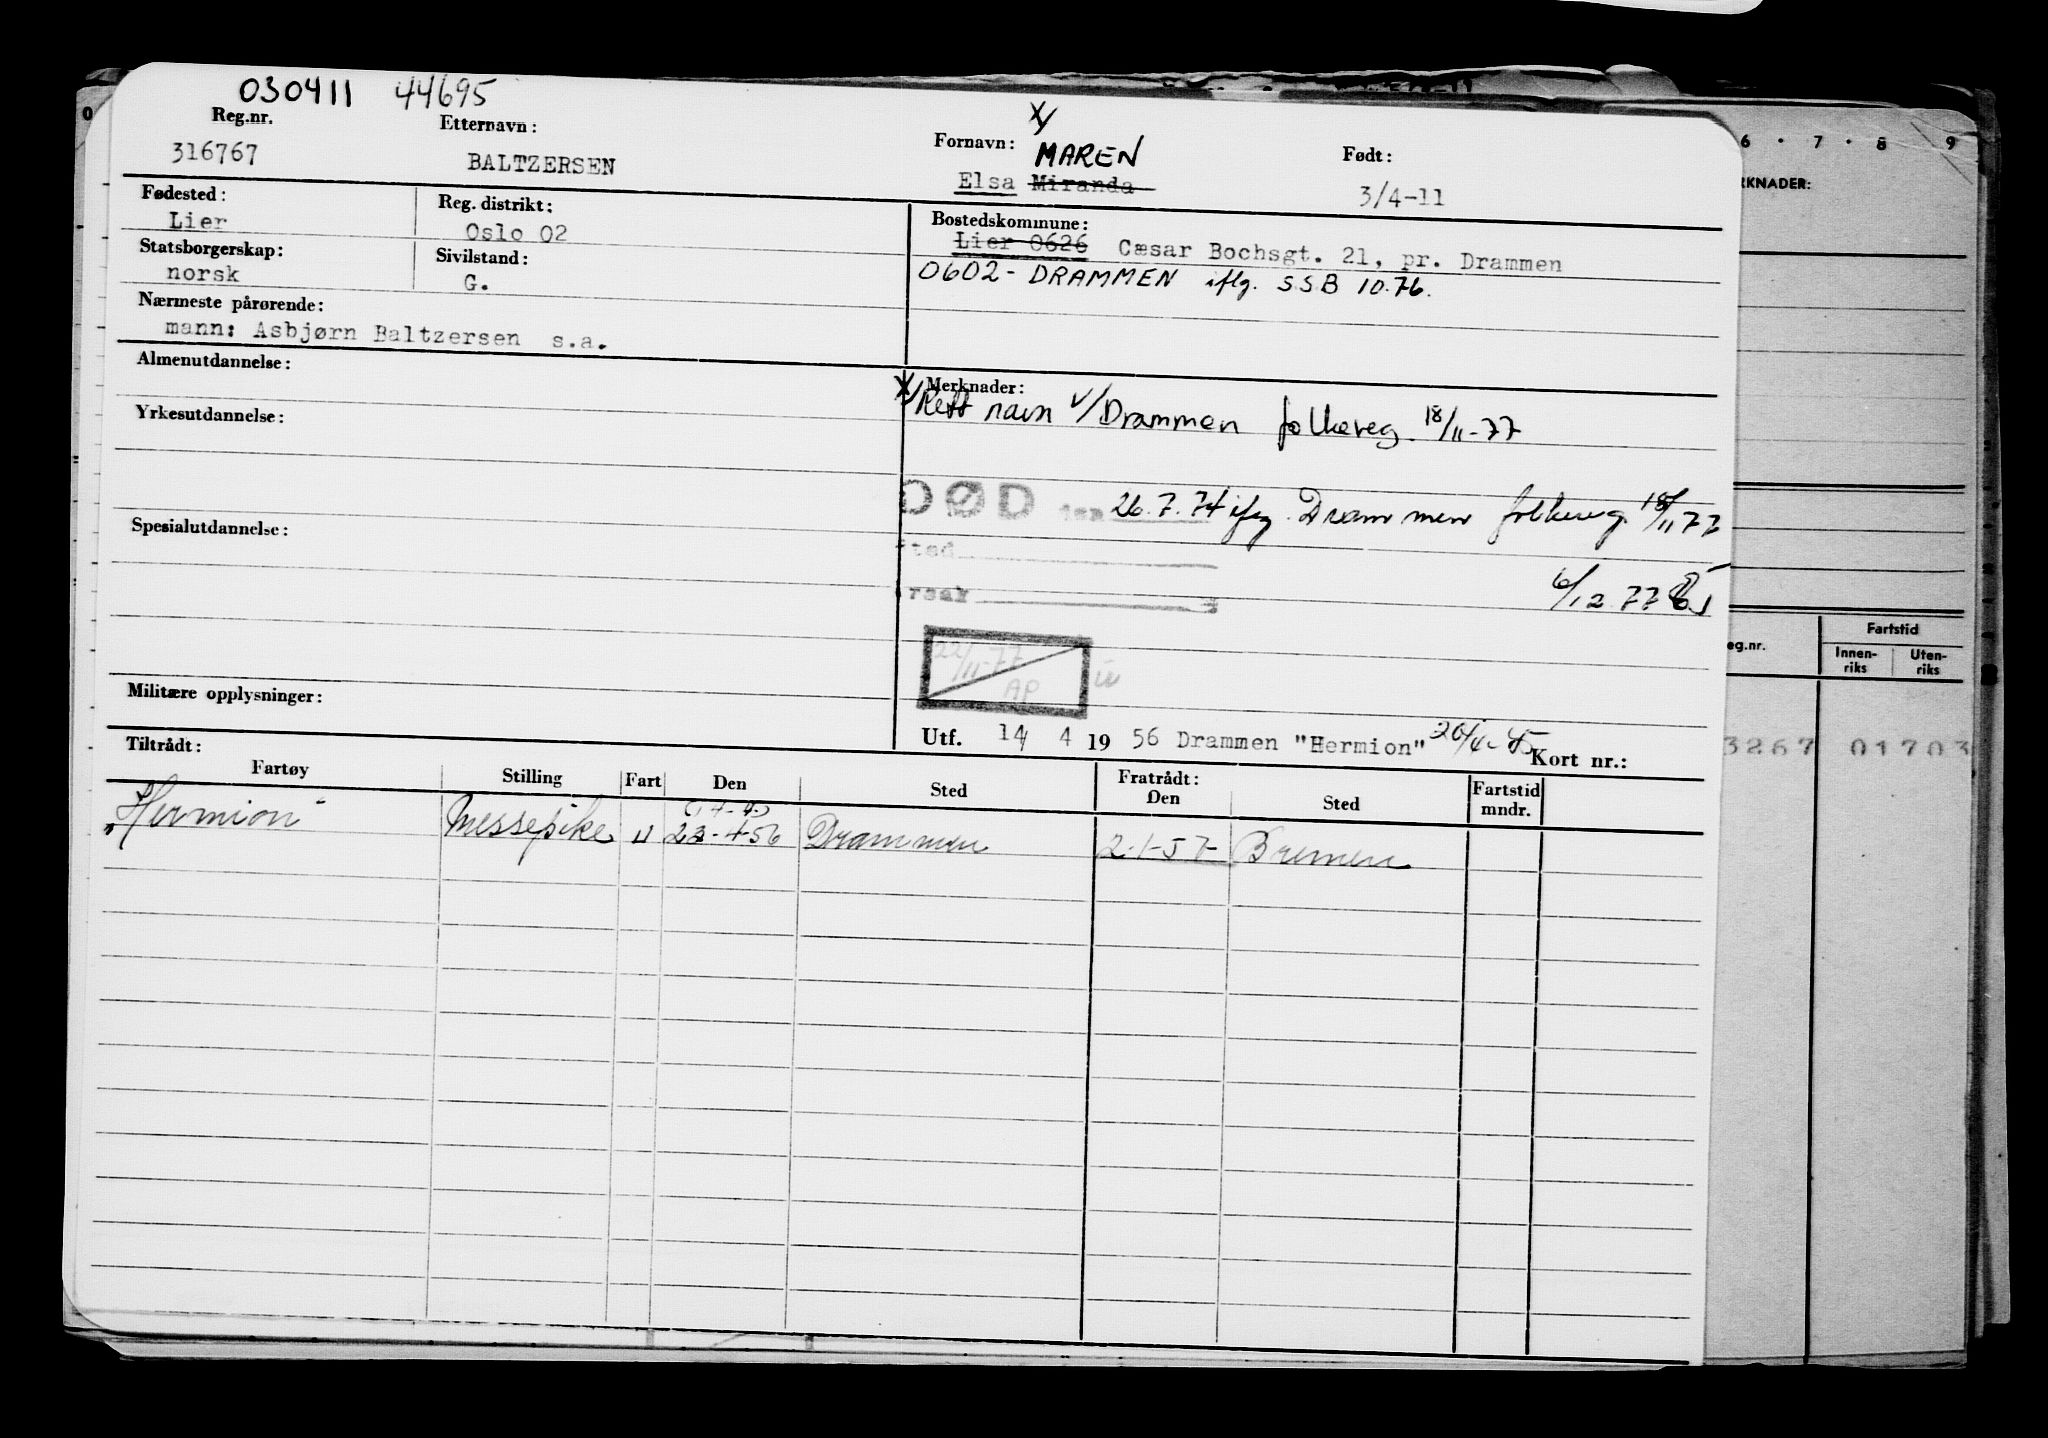 030411 44695
Reg.nr. Etternavn: Fornavn: X/ MAREN Født:
316767 BALTZERSEN Elsa Miranda 3/4-11
Fødested: Reg. distrikt: Bostedskommune:
Lier Oslo 02 Lier 0626 Cæsar Bochsgt. 21, pr. Drammen
Statsborgerskap: Sivilstand:
norsk G. 0602 - DRAMMEN iflg. SSB 10.76.
Nærmeste pårørende:
mann: Asbjørn Baltzersen s.a.
Almenutdannelse:
Merknader:
X/ Rett navn v/Drammen folkereg. 18/11-77
Yrkesutdannelse:
DØD den 26.7.74 iflg. Drammen folkereg. 18/11 77
Spesialutdannelse:
sted
rsak
6/12.77
22/11-77
AP
Militære opplysninger:
Utf. 14/ 4 19 56 Drammen "Hermion" Kort nr.:
Tiltrådt: Fratrådt:
Fartøy Stilling Fart Den Sted Den Sted Fartstid mndr.
"Hermion" Messepike U 23-4-56 Drammen 2-1-57 Bremen
6 · 7 · 8 9
RKNADER:
eg.nr. Fartstid
Innen-riks Uten-riks
3267 01703